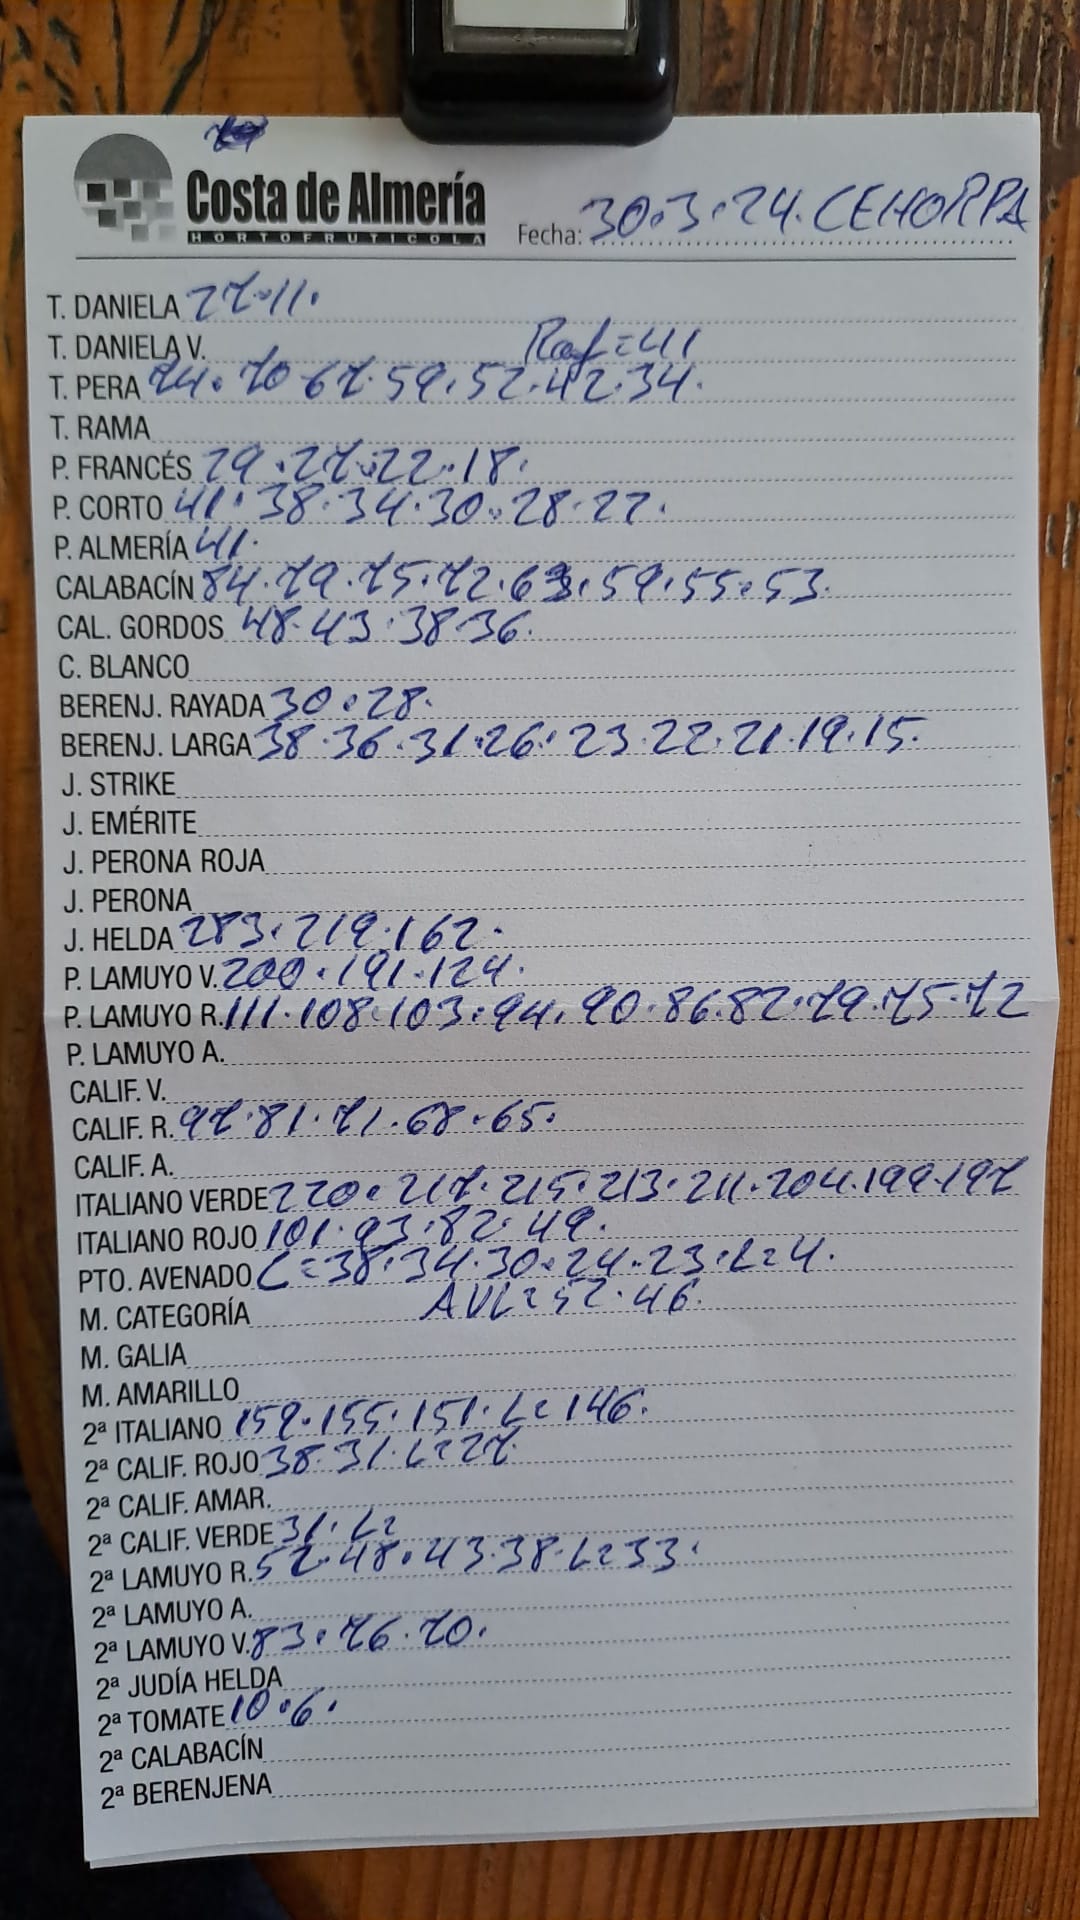 Costa de Almería
HORTOFRUTICOLA
Fecha: 30.3.24. CEHORPA
T. DANIELA 27.11.
T. DANIELA V. Raf=41
T. PERA 74.70.67.59.52.42.34.
T. RAMA
P. FRANCÉS 29.27.22.18.
P. CORTO 41.38.34.30.28.27.
P. ALMERÍA 41.
CALABACÍN 84.79.75.72.63.59.55.53.
CAL. GORDOS 48.43.38.36.
C. BLANCO
BERENJ. RAYADA 30.28.
BERENJ. LARGA 38.36.31.26.23.22.21.19.15.
J. STRIKE
J. EMÉRITE
J. PERONA ROJA
J. PERONA
J. HELDA 283.219.162.
P. LAMUYO V. 200.191.124.
P. LAMUYO R. 111.108.103.94.90.86.82.79.75.72
P. LAMUYO A.
CALIF. V.
CALIF. R. 97.81.71.68.65.
CALIF. A.
ITALIANO VERDE 220.217.215.213.211.204.199.197
ITALIANO ROJO 101.93.82.49.
PTO. AVENADO C=38.34.30.24.23.L=4.
M. CATEGORÍA AVL=52.46.
M. GALIA
M. AMARILLO
2ª ITALIANO 159.155.151.L=146.
2ª CALIF. ROJO 38.31.L=27.
2ª CALIF. AMAR.
2ª CALIF. VERDE 31.L=
2ª LAMUYO R. 52.48.43.38.L=33.
2ª LAMUYO A.
2ª LAMUYO V. 83.76.70.
2ª JUDÍA HELDA
2ª TOMATE 10.6.
2ª CALABACÍN
2ª BERENJENA